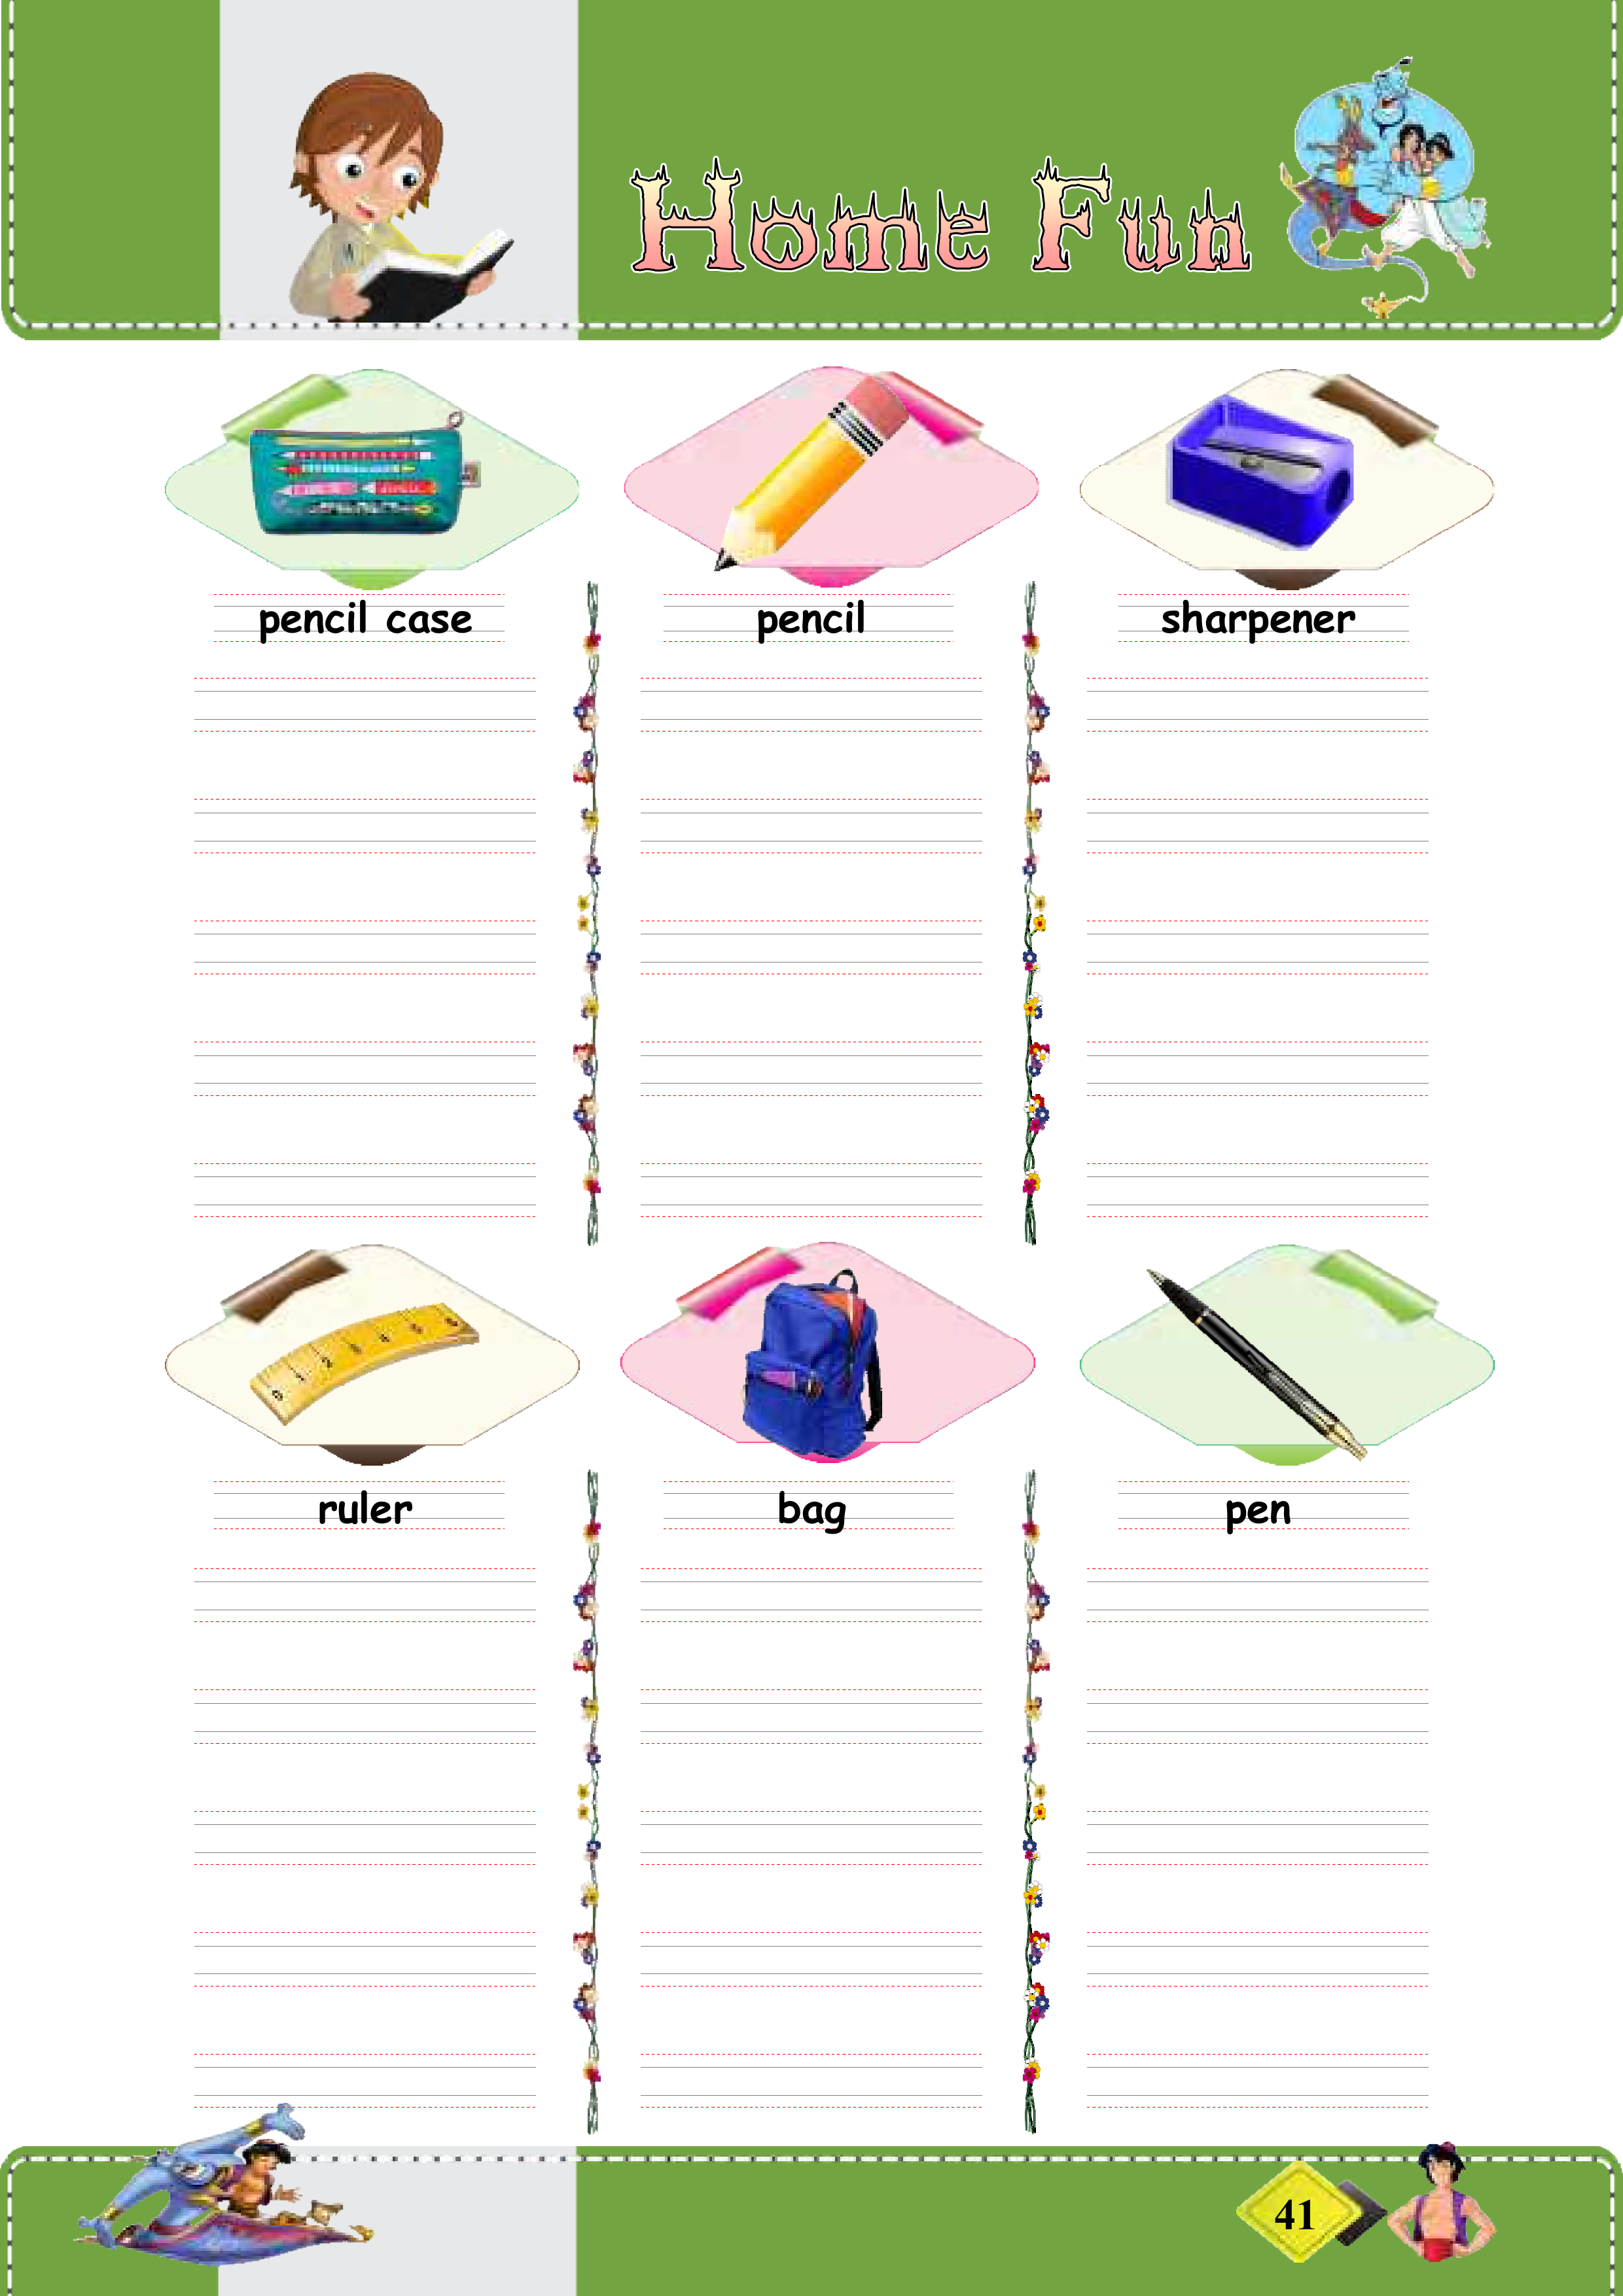 Home Fun
pencil case
pencil
sharpener
ruler
bag
pen
41